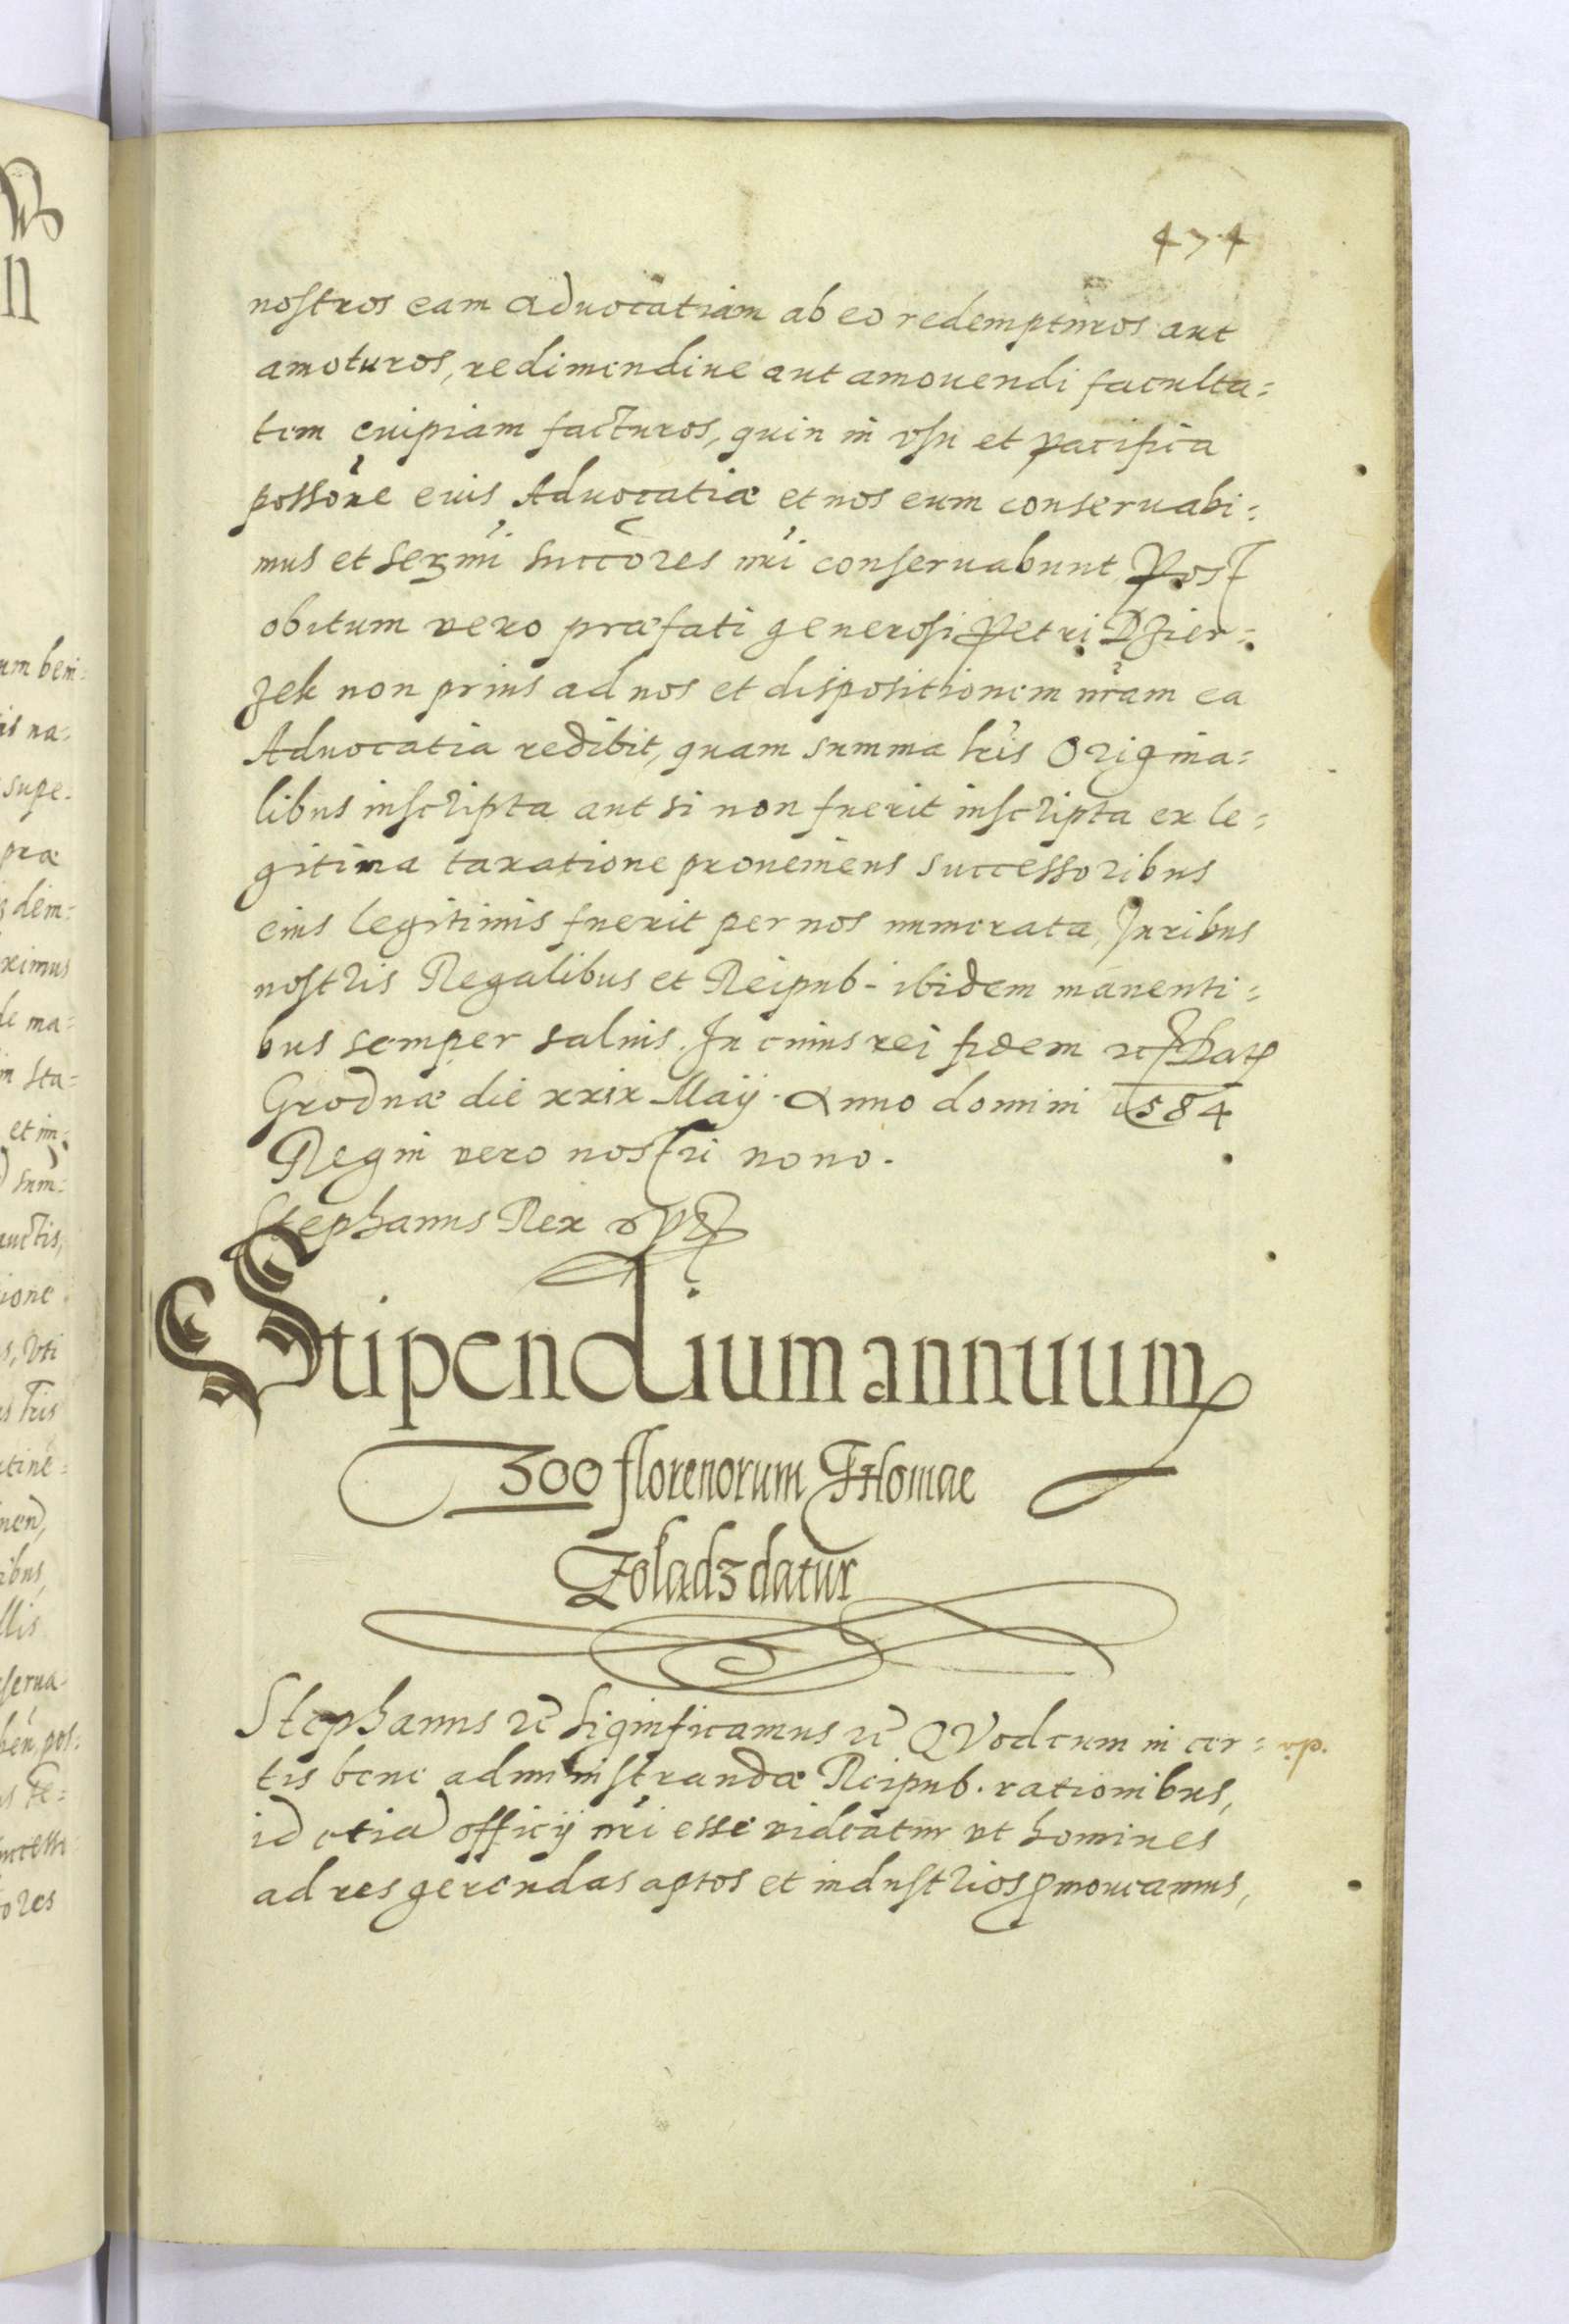 474
nostros eam Aduocatiam ab eo redempturos aut
amoturos, redimendiue aut amouendi faculta=
tem cuipiam facturos, quin in vsu et pacifica
possõne eius Aduocatiæ et nos eum conseruabi=
mus et sermi succores nri conseruabunt, Post
obitum vero præfati generosi Petri Dzier=
zek non prius ad nos et dispositionem nram ea
Aduocatia redibit, quam summa lris Origina=
libus inscripta aut si non fuerit inscripta ex le=
gitima taxatione proueniens successoribus
eius legitimis fuerit per nos numerata, Juribus
nostris Regalibus et Reipub- ibidem manenti=
bus semper saluis. In cuius rei fidem
Grodnæ die xxix Maij. Anno domini 1584
Regni vero nostri nono.
Stephanus Rex
Stipendium annuum
300 florenorum Thomae
Zoladz datur
Stephanus rc Significamus rc QVod cum in cer=
tis bene administrandæ Reipub. rationibus,
id etia officij nri esse videatur vt homines
ad res gerendas aptos et industrios pmoueamus,
um beni=
is na=
supe-
præ
dem=
ximus
de ma=
in sta=
et in=
sum=
uctis,
ione
s, vti
tine=
nen,
ibus,
llis
serua-
ores